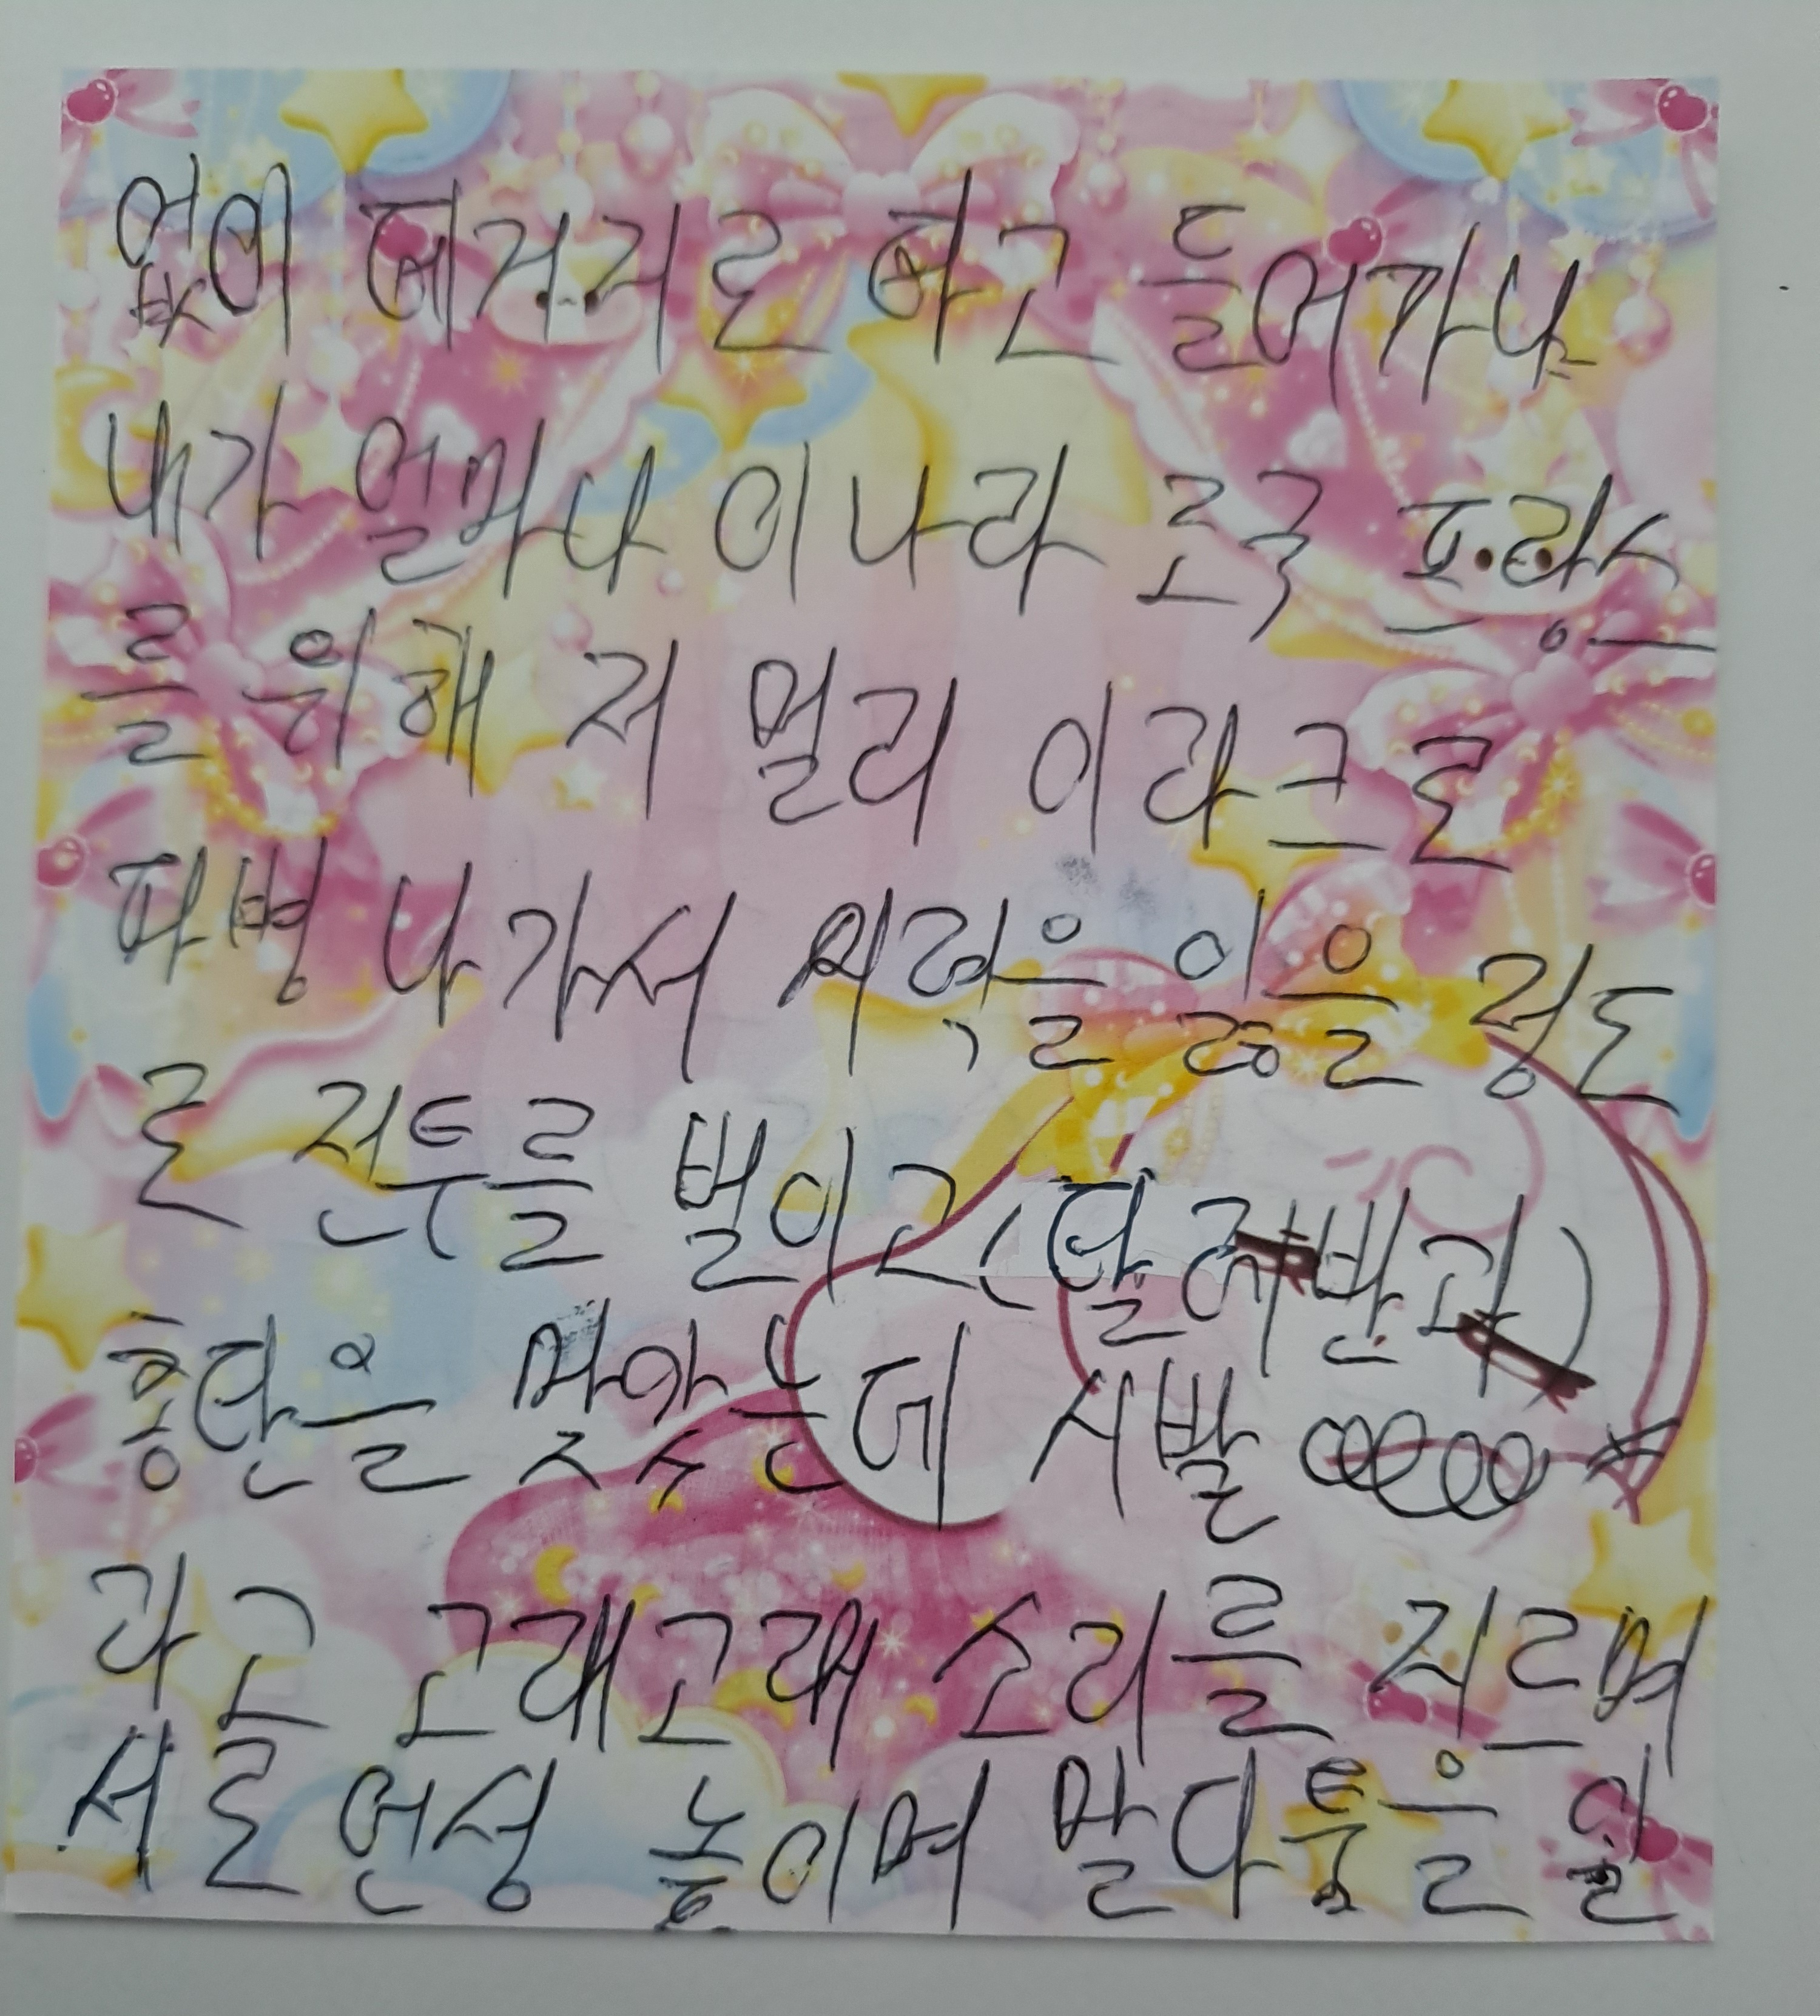 없이 떼거지로 하고 들어가냐
내가 얼마나 이나라 조국 프랑스
를 위해 저 멀리 이라크로
파병 나가서 시력을 잃을 정도
로 전투를 벌이고(탈레반과)
총탄을 맞았는데 시발
라고 고래고래 소리를 지르며
서로 언성 높이며 말다툼을 일